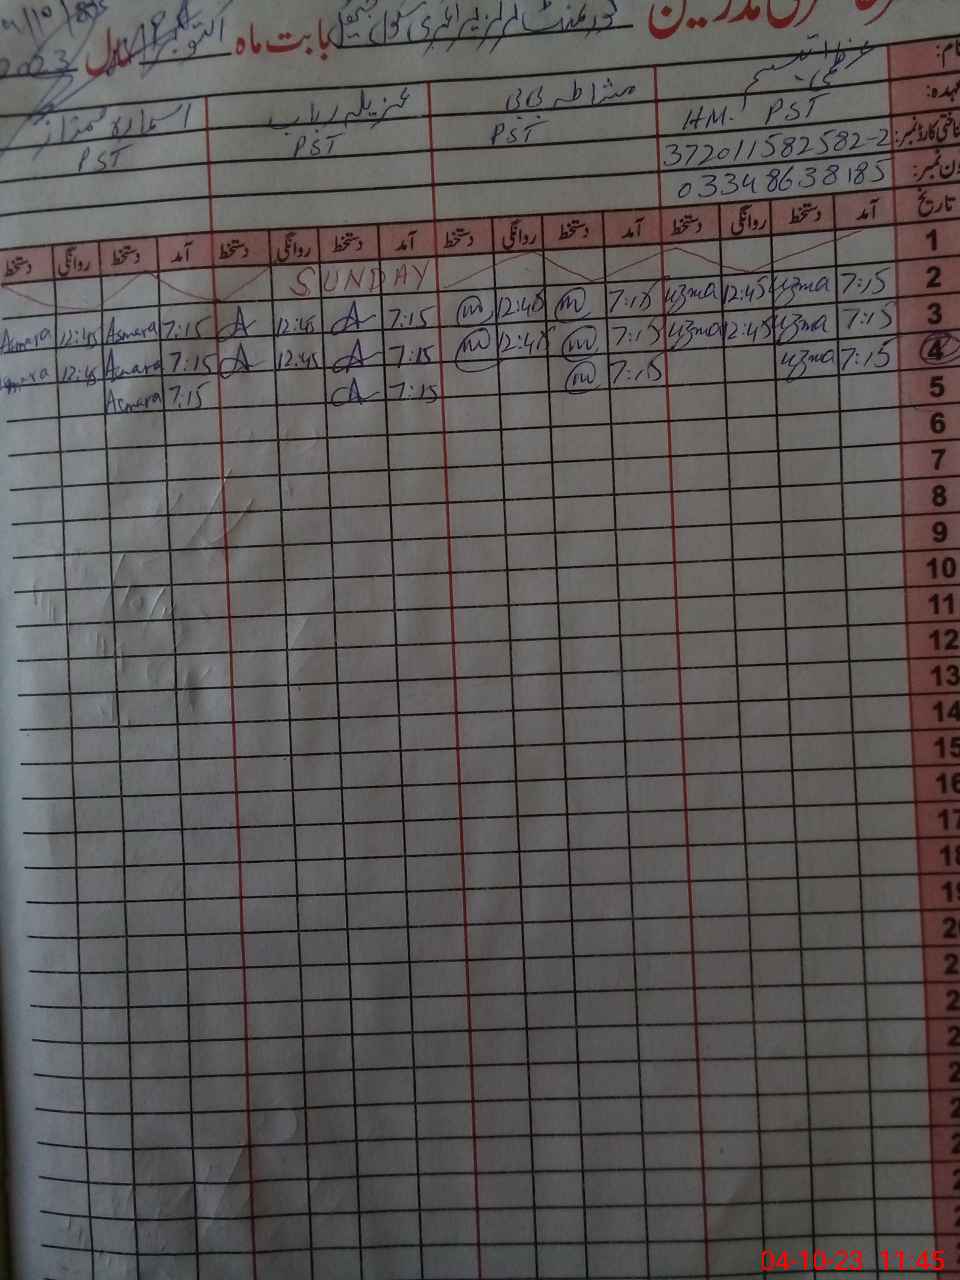 حاضری مدرسین گورنمنٹ گرلز پرائمری سکول بابت ماہ اکتوبر سال 2023
نام: عظمیٰ
عہدہ: H.M. PST
شناختی کارڈ نمبر: 372011582582-2
فون نمبر: 03348638185
PST
عزیلہ رباب
PST
PST
تاریخ آمد دستخط روانگی دستخط آمد دستخط روانگی دستخط آمد دستخط روانگی دستخط آمد دستخط روانگی دستخط
1 SUNDAY
2 7:15 uzma 12:45 uzma 7:15 m 12:45 m 7:15 A 12:45 A 7:15 Asmara 12:45 Asmara
3 7:15 uzma 12:45 uzma 7:15 m 12:45 m 7:15 A 12:45 A 7:15 Asmara 12:45 Asmara
4 7:15 uzma 7:15 m 7:15 A 7:15 Asmara
5
6
7
8
9
10
11
12
13
14
15
16
17
18
19
04-10-23 11:45